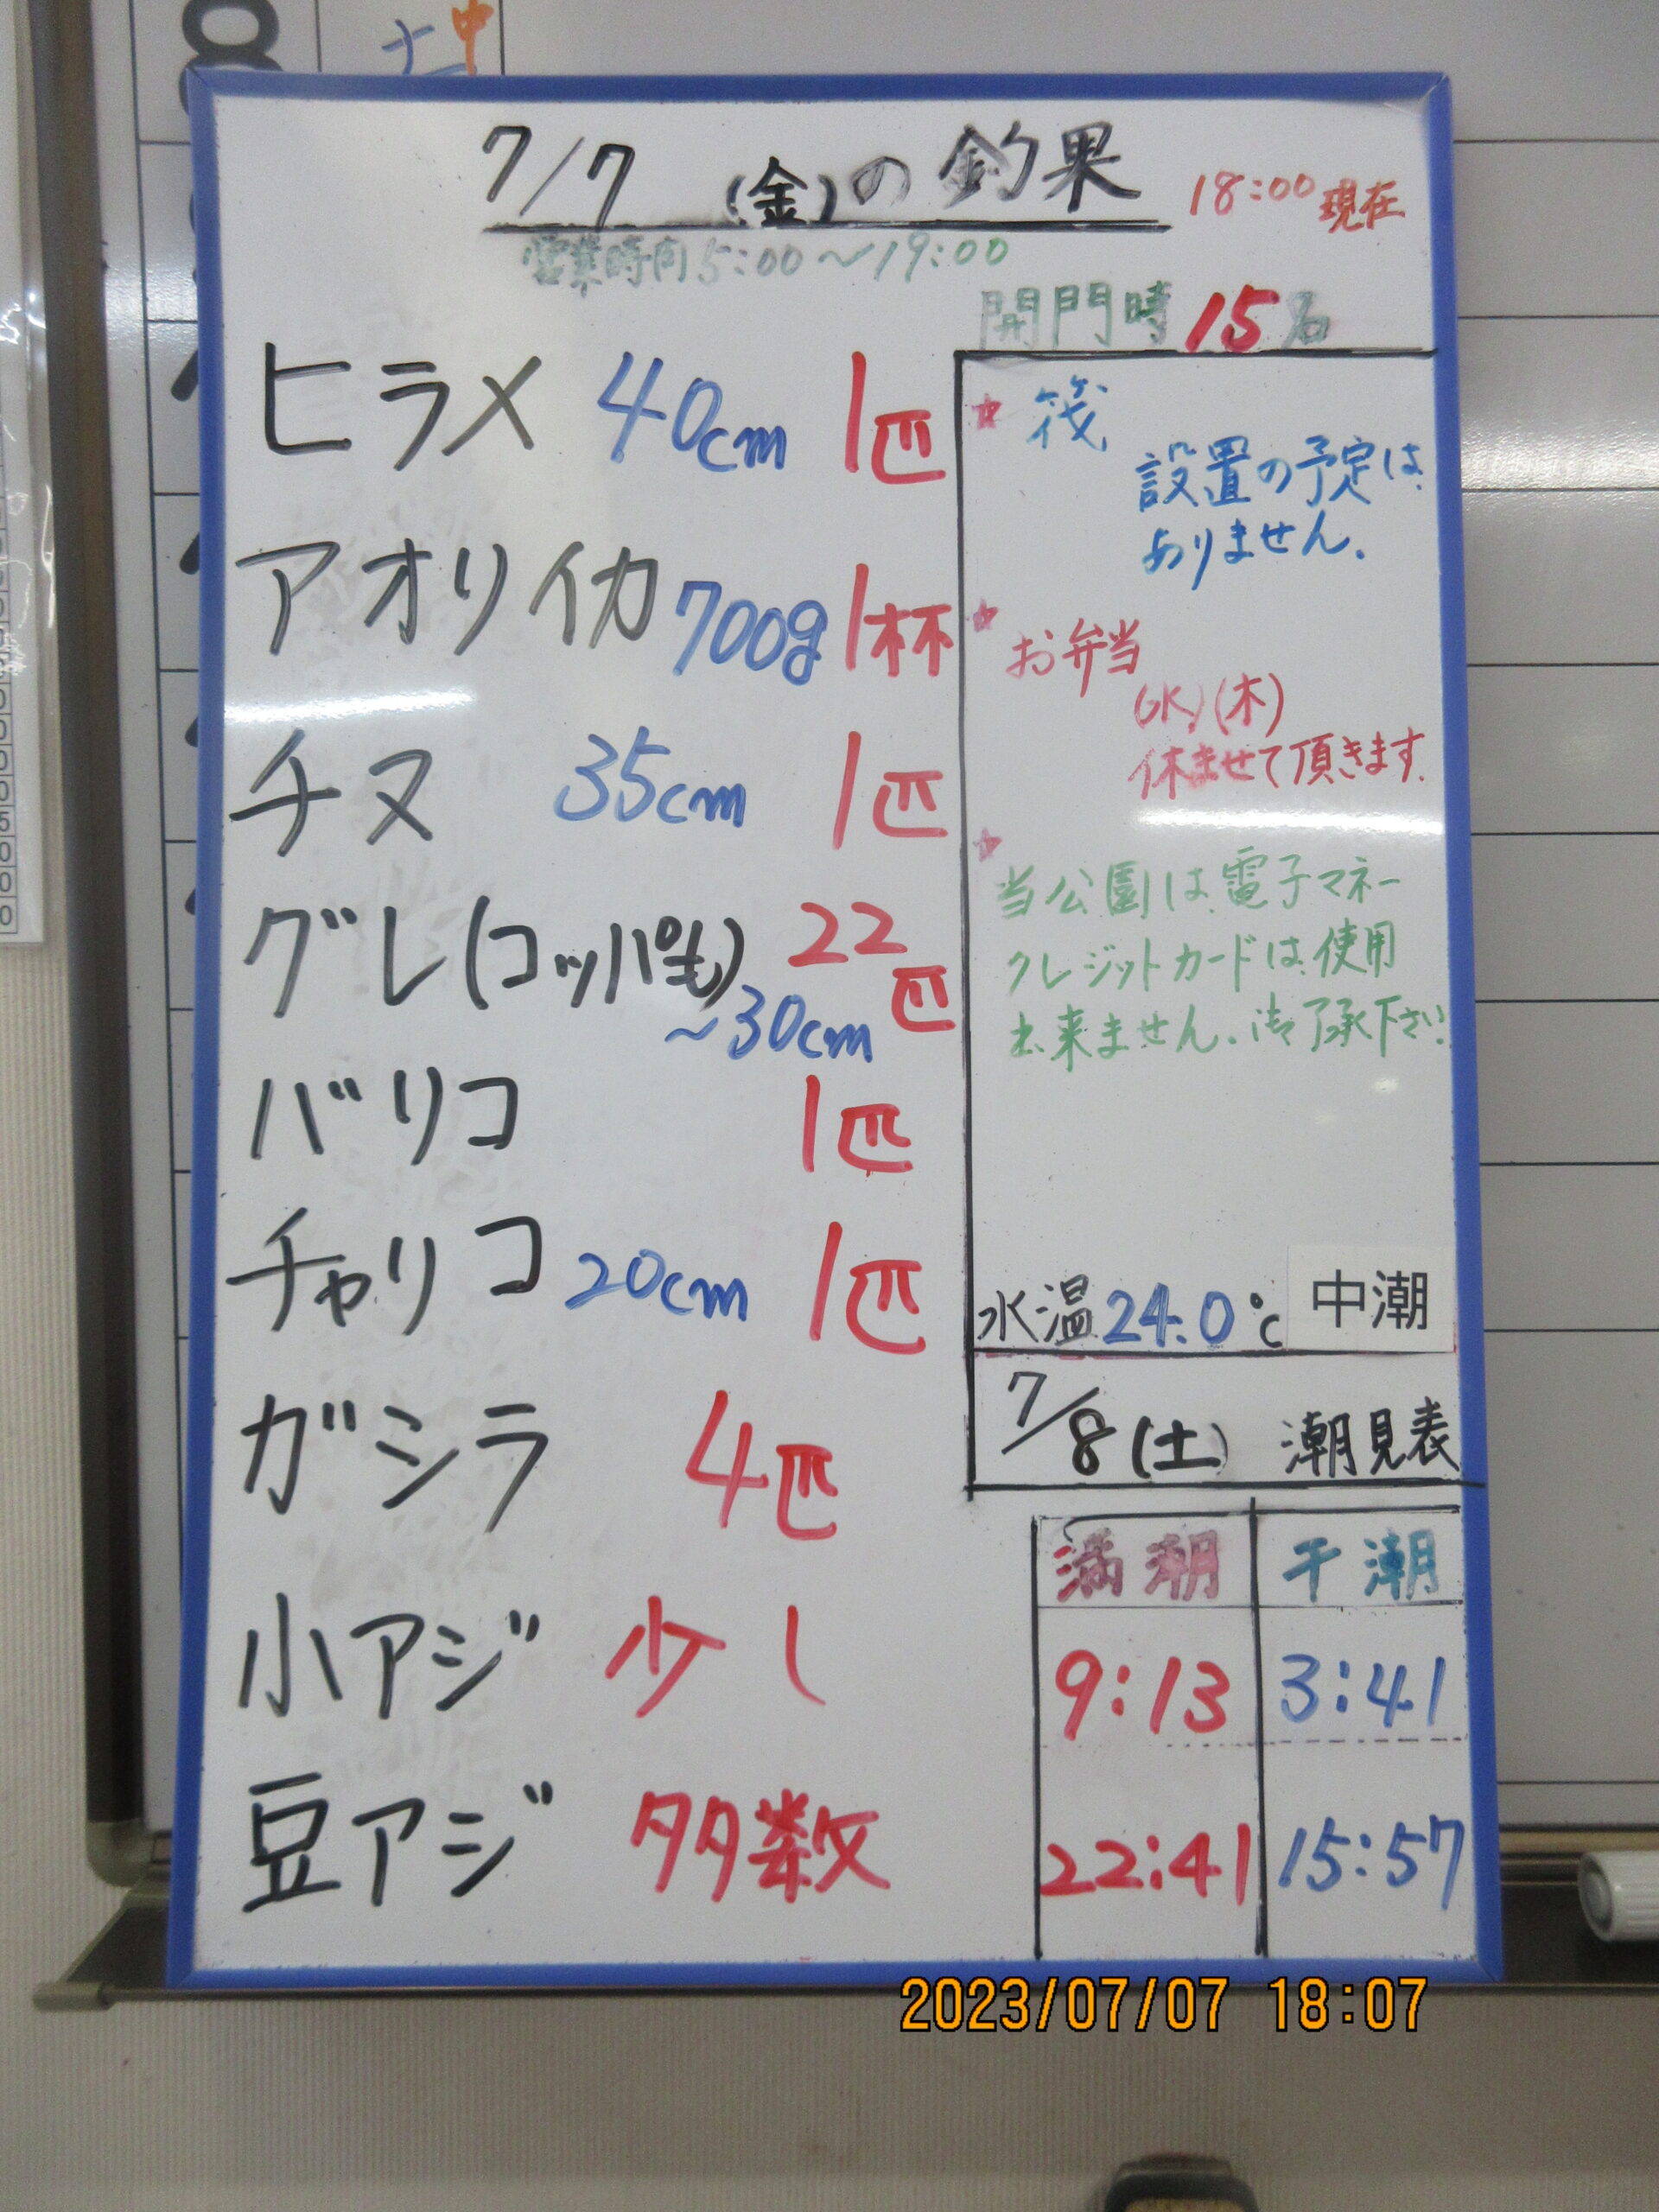 8 土 中
7/7 (金)の釣果 18:00現在
営業時間5:00〜19:00
開門時 15名
ヒラメ 40cm 1匹
アオリイカ 700g 1杯
チヌ 35cm 1匹
グレ(コッパも) 22匹
~30cm
バリコ 1匹
チャリコ 20cm 1匹
ガシラ 4匹
小アジ 少し
豆アジ 多数
★ 筏
設置の予定は
ありません.
★ お弁当
(水)(木)
休ませて頂きます.
★
当公園は電子マネー
クレジットカードは使用
出来ません.御了承下さい.
水温24.0℃ 中潮
7/8(土) 潮見表
満潮 干潮
9:13 3:41
22:41 15:57
2023/07/07 18:07